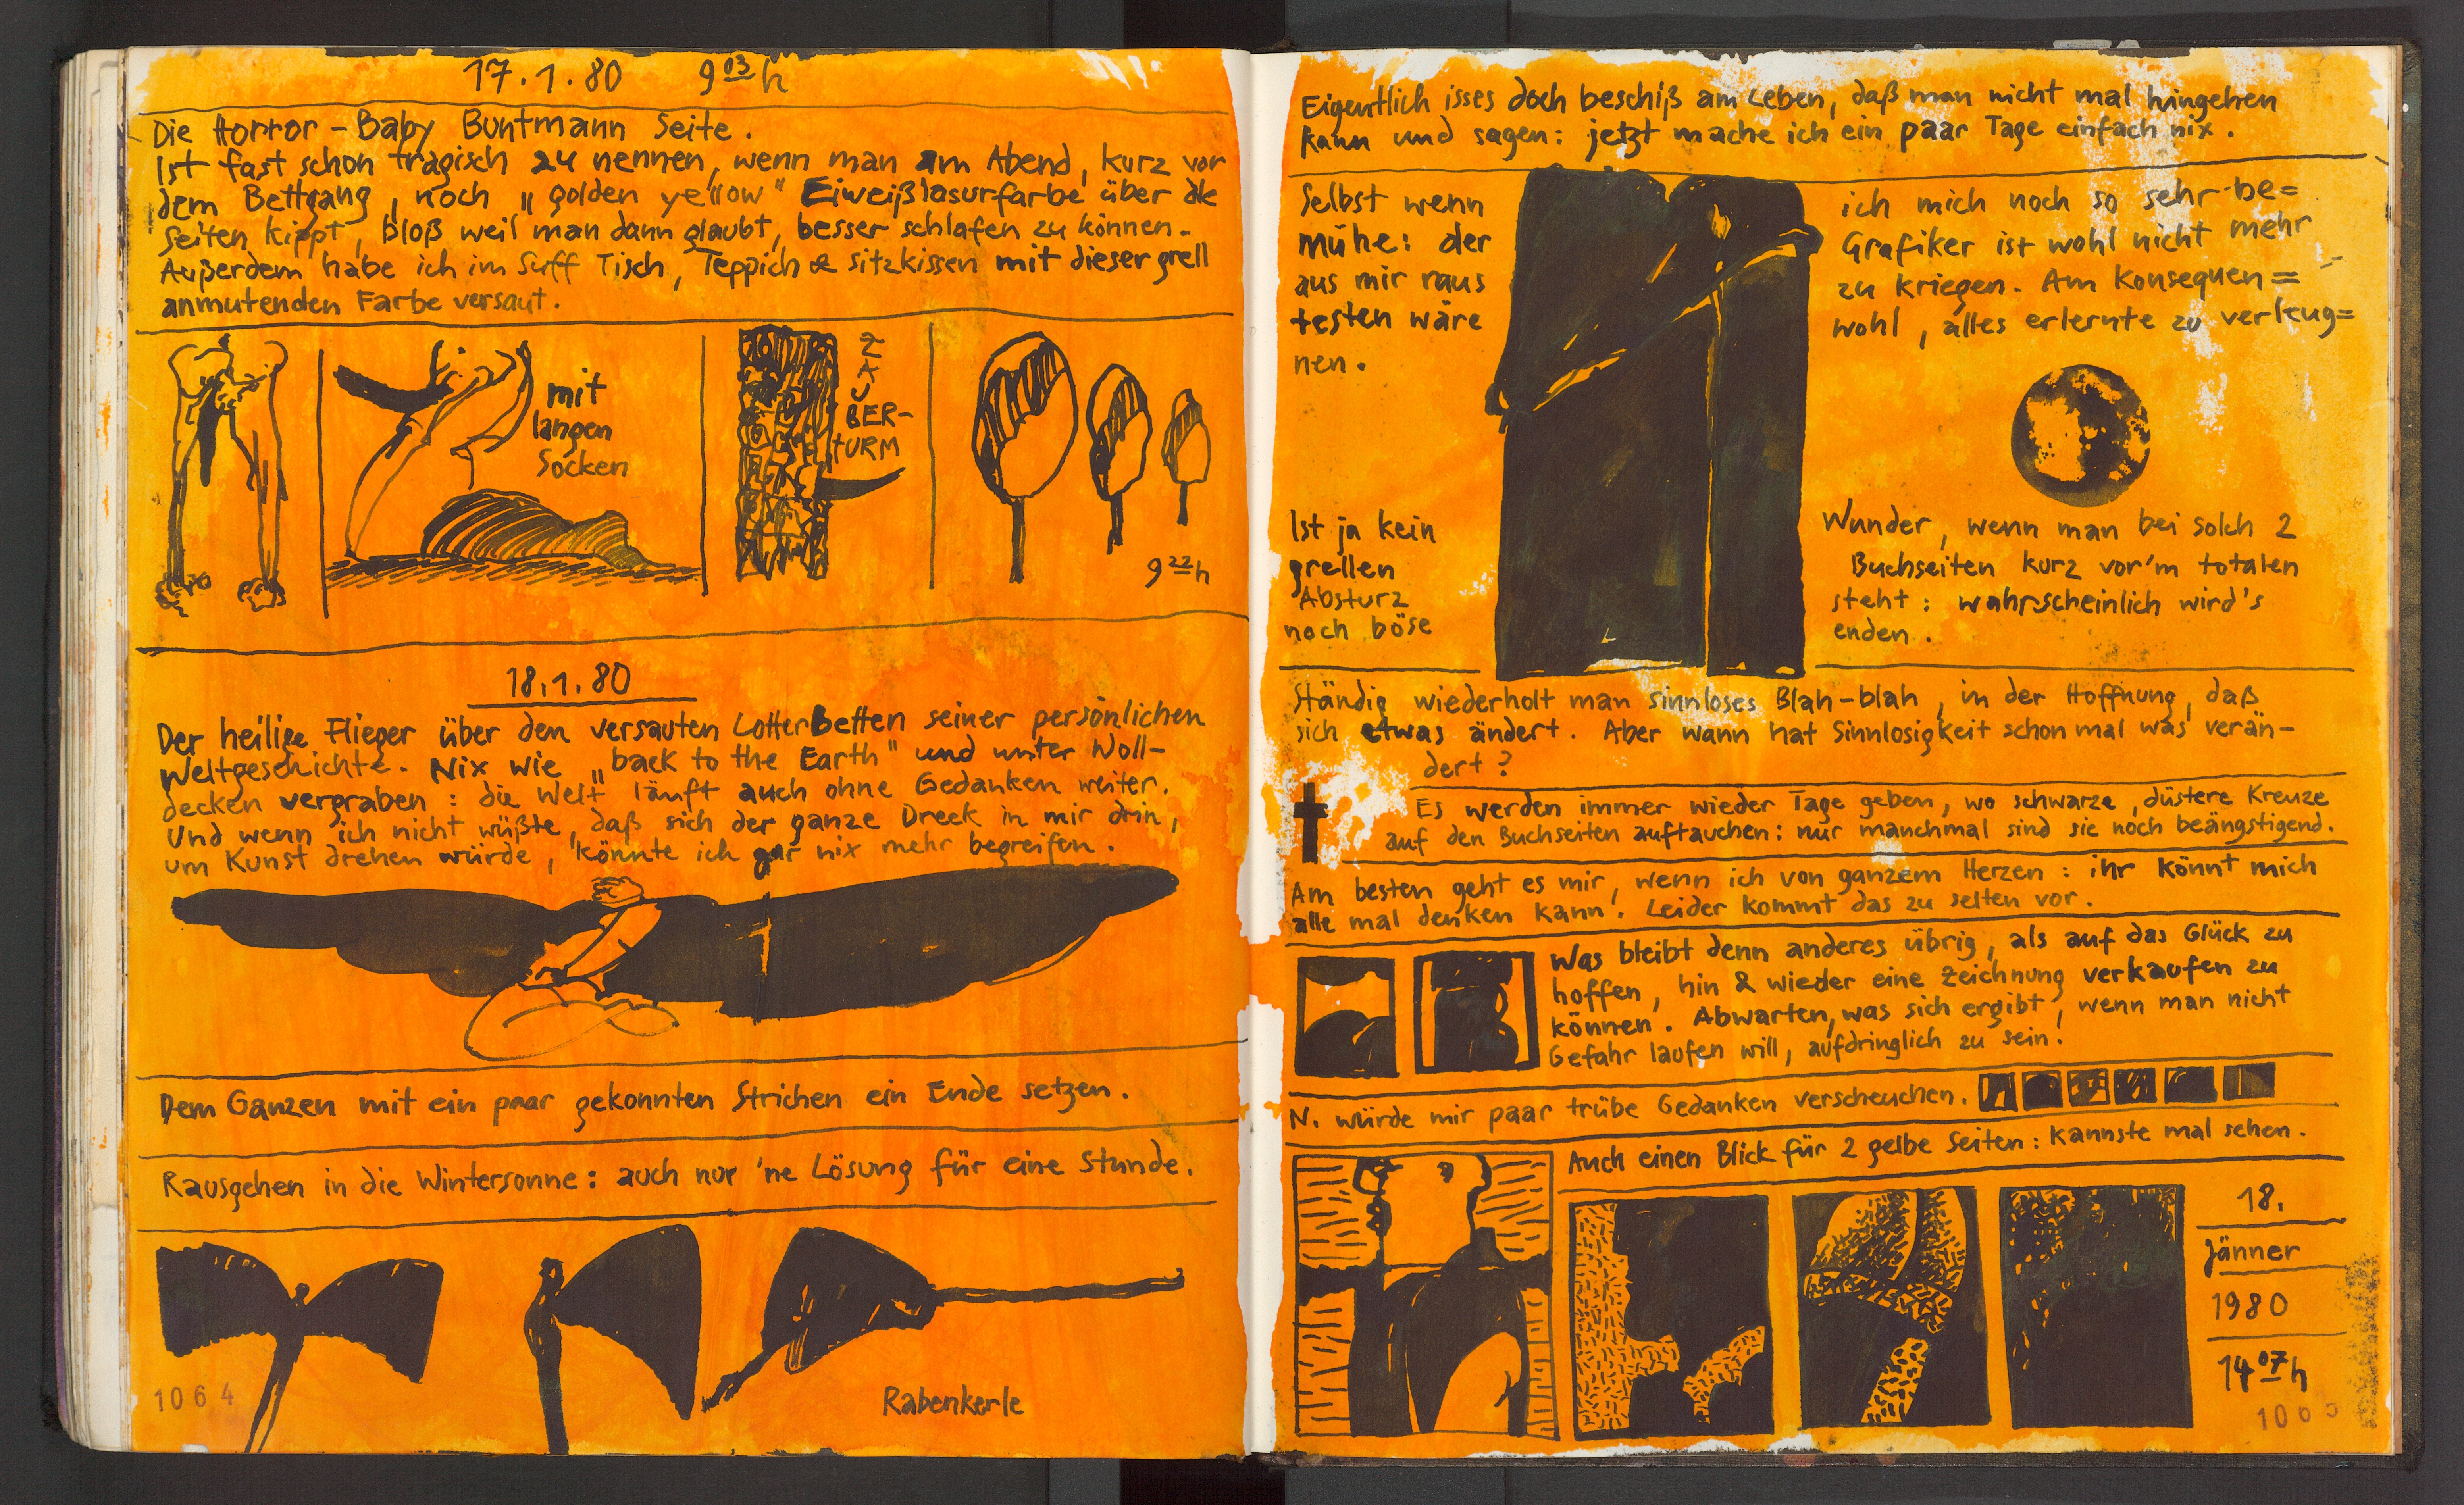 17.1.80 9 03 h
Die Horror-Baby Buntmann Seite.
Ist fast schon tragisch zu nennen, wenn man am Abend, kurz vor
dem Bettgang, noch „golden yellow" Eiweißlasurfarbe über die
Seiten kippt, bloß weil man dann glaubt, besser schlafen zu können.
Außerdem habe ich im Suff Tisch, Teppich & Sitzkissen mit dieser grell
anmutenden Farbe versaut.
mit
langen
Socken
ZAUBER-
TURM
9 22 h
18.1.80
Der heilige Flieger über den versauten LotterBetten seiner persönlichen
Weltgeschichte. Nix wie „back to the Earth" und unter Woll-
decken vergraben: die Welt läuft auch ohne Gedanken weiter.
Und wenn ich nicht wüßte, daß sich der ganze Dreck in mir drin,
um Kunst drehen würde, könnte ich gar nix mehr begreifen.
Dem Ganzen mit ein paar gekonnten Strichen ein Ende setzen.
Rausgehen in die Wintersonne: auch nur 'ne Lösung für eine Stunde.
Rabenkerle
1064
Eigentlich isses doch beschiß am Leben, daß man nicht mal hingehen
kann und sagen: jetzt mache ich ein paar Tage einfach nix.
Selbst wenn ich mich noch so sehr be=
mühe: der Grafiker ist wohl nicht mehr
aus mir raus zu kriegen. Am Konsequen=
testen wäre wohl, alles erlernte zu verleug=
nen.
Ist ja kein Wunder, wenn man bei solch 2
grellen Buchseiten kurz vor'm totalen
Absturz steht: wahrscheinlich wird's
noch böse enden.
Ständig wiederholt man sinnloses Blah-blah, in der Hoffnung, daß
sich etwas ändert. Aber wann hat Sinnlosigkeit schon mal was verän-
dert?
Es werden immer wieder Tage geben, wo schwarze, düstere Kreuze
auf den Buchseiten auftauchen: nur manchmal sind sie noch beängstigend.
Am besten geht es mir, wenn ich von ganzem Herzen: ihr könnt mich
alle mal denken kann! Leider kommt das zu selten vor.
Was bleibt denn anderes übrig, als auf das Glück zu
hoffen, hin & wieder eine Zeichnung verkaufen zu
können. Abwarten, was sich ergibt, wenn man nicht
Gefahr laufen will, aufdringlich zu sein!
N. würde mir paar trübe Gedanken verscheuchen.
Auch einen Blick für 2 gelbe Seiten: kannste mal sehen.
18.
Jänner
1980
14 07 h
1065